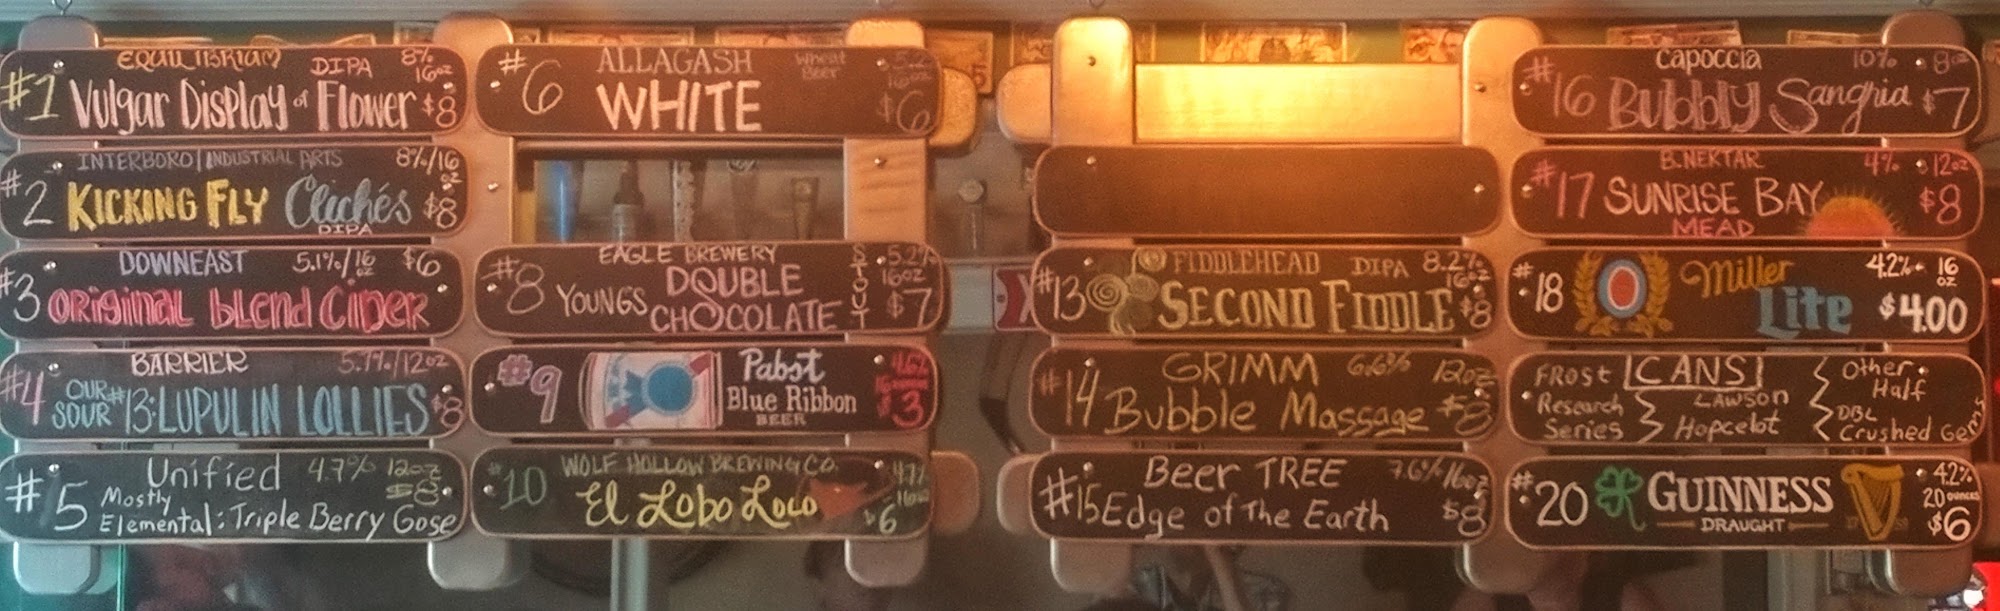 EQUILIBRIUM DIPA 8% 16oz
#1 Vulgar Display of Flower $8
INTERBORO/INDUSTRIAL ARTS 8%/16 oz
#2 KICKING FLY Clichés $8
DIPA
DOWNEAST 5.1%/16 oz $6
#3 ORIGINAL BLEND CIDER
BARRIER 5.7%/12oz
#4 OUR SOUR #13: LUPULIN LOLLIES $8
Unified 4.7% 12oz
#5 Mostly Elemental: Triple Berry Gose $8
#6 ALLAGASH Wheat Beer 5.2 16oz
WHITE $6
EAGLE BREWERY STOUT 5.2% 16oz
#8 YOUNGS DOUBLE CHOCOLATE $7
#9 Pabst 4.6%
Blue Ribbon 16
BEER $3
WOLF HOLLOW BREWING CO. 4.7% 16oz
#10 El Lobo Loco $6
FIDDLEHEAD DIPA 8.2% 16oz
#13 SECOND FIDDLE $8
GRIMM 6.6% 12oz
#14 Bubble Massage $8
Beer TREE 7.6%/16oz
#15 Edge of The Earth $8
Capoccia 10% 8oz
#16 Bubbly Sangria $7
B. NEKTAR 4% 12oz
#17 SUNRISE BAY $8
MEAD
#18 Miller Lite 4.2% 16 oz
$4.00
CANS
FROST Research Series
LAWSON Hopcelot
Other Half DBL Crushed Gems
#20 GUINNESS 4.2%
DRAUGHT 20 OUNCES
$6